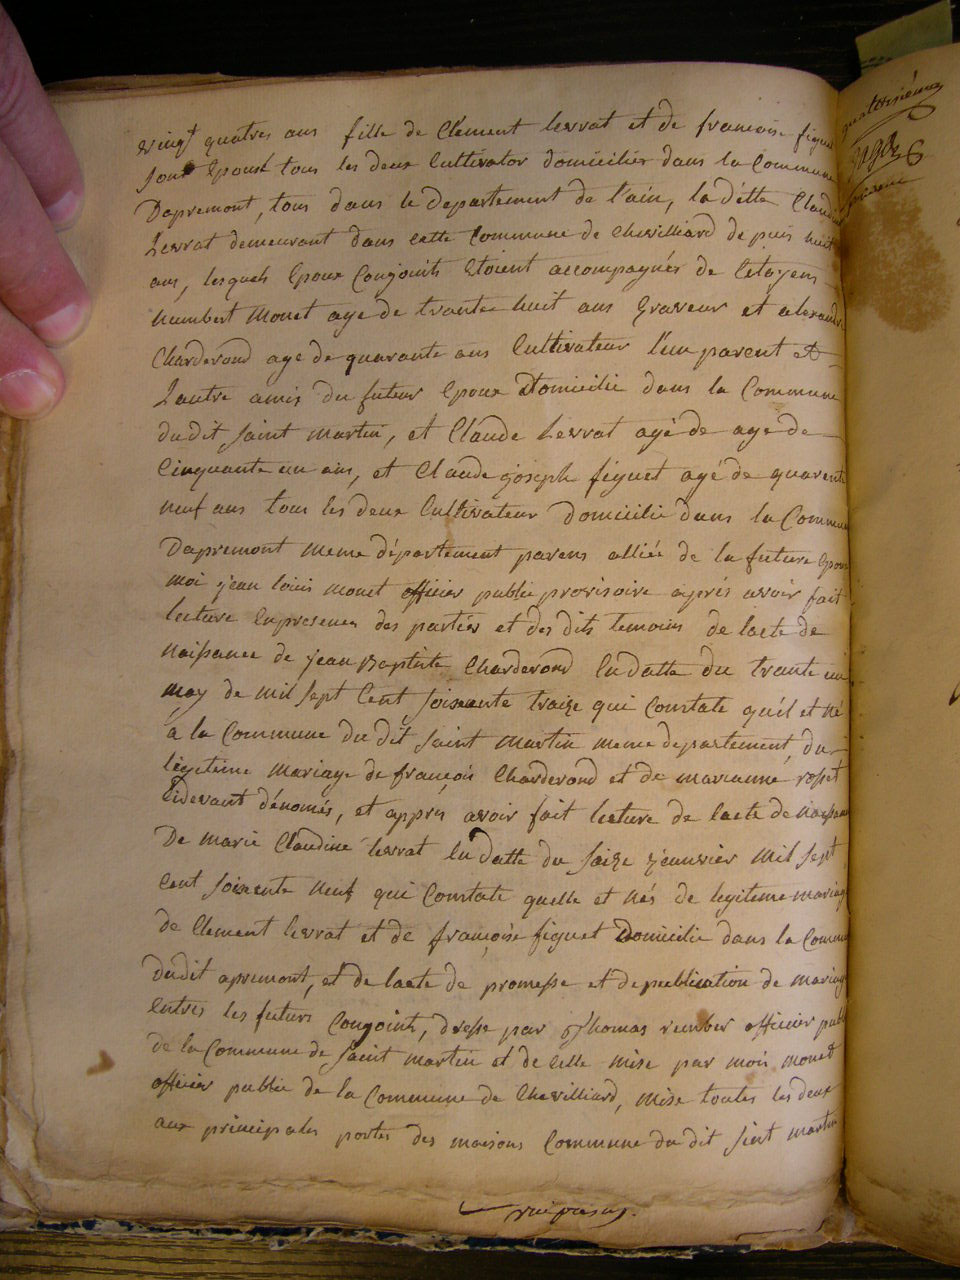 vingt quatres ans fille de Clément levrat et de francoise figuet
Epoux tous les deux Cultivator domicilies dans la Commune
Dapremont, tous dans le departement de l'ain, la d'itte Claudi
Levrat demeurant dans cette Commune de Chevilliard depuis huit
ans, lesquels Epoux Conjoints Etoient accompagnés de Citoyens
humbert Monet age de trante huit ans Graveur et alexandre
Charderond age de quarante ans Cultivateur l'un parent et
Lautre amis du futeur Epoux Domicilie dans la Commune
dudit saint martin, et Claude Levrat agé de age de
Cinquante un ans, et Claude joseph figuet agé de quarente
neuf ans tous les deux Cultivateur domicilie dans la Commune
Dapremont meme département parens alliée de la future Epou
moi jean louis monet officier public provisoire aprés avoir fait
lecture En presence des partiés et des dits temoins de lacte de
naissance de jean Baptiste Charderond En datte du trante un
may de mil sept Cent soixante traize qui Constate qu'il et né
a la Commune du dit saint martin meme departement, du
légeteime mariage de françois Charderond et de marianne rosset
Cidevant dénomés, et appres avoir fait lecture de lacte de naissance
De marie Claudine levrat En datte du saize jeanvier mil sept
Cent soixente neuf qui Constate quelle et nés de legiteme mariage
de Clement levrat et de françoise figuet Domicilie dans la Commune
dudit apremont, et de lacte de promesse et de publication de mariage
Entres les futurs Conjoints, dresse par Thomas officier publi
de la Commune de saint martin et de Celle mise par moi monet
officier public de la Commune de Chevilliard, mise toutes les deux
aux principales portes des maisons Commune du dit sint martin
quatorzième